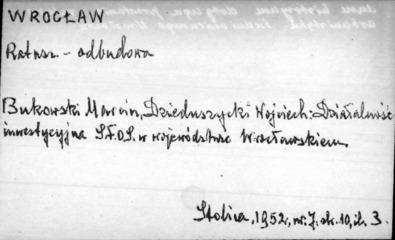 WROCŁAW
Ratusz - odbudowa
Bukowski Marcin, Dzieduszycki Wojciech: Działalność
inwestycyjna S.F.O.S. w województwie Wrocławskiem
Stolica, 1952, nr. 7. sk. 10, il. 3.